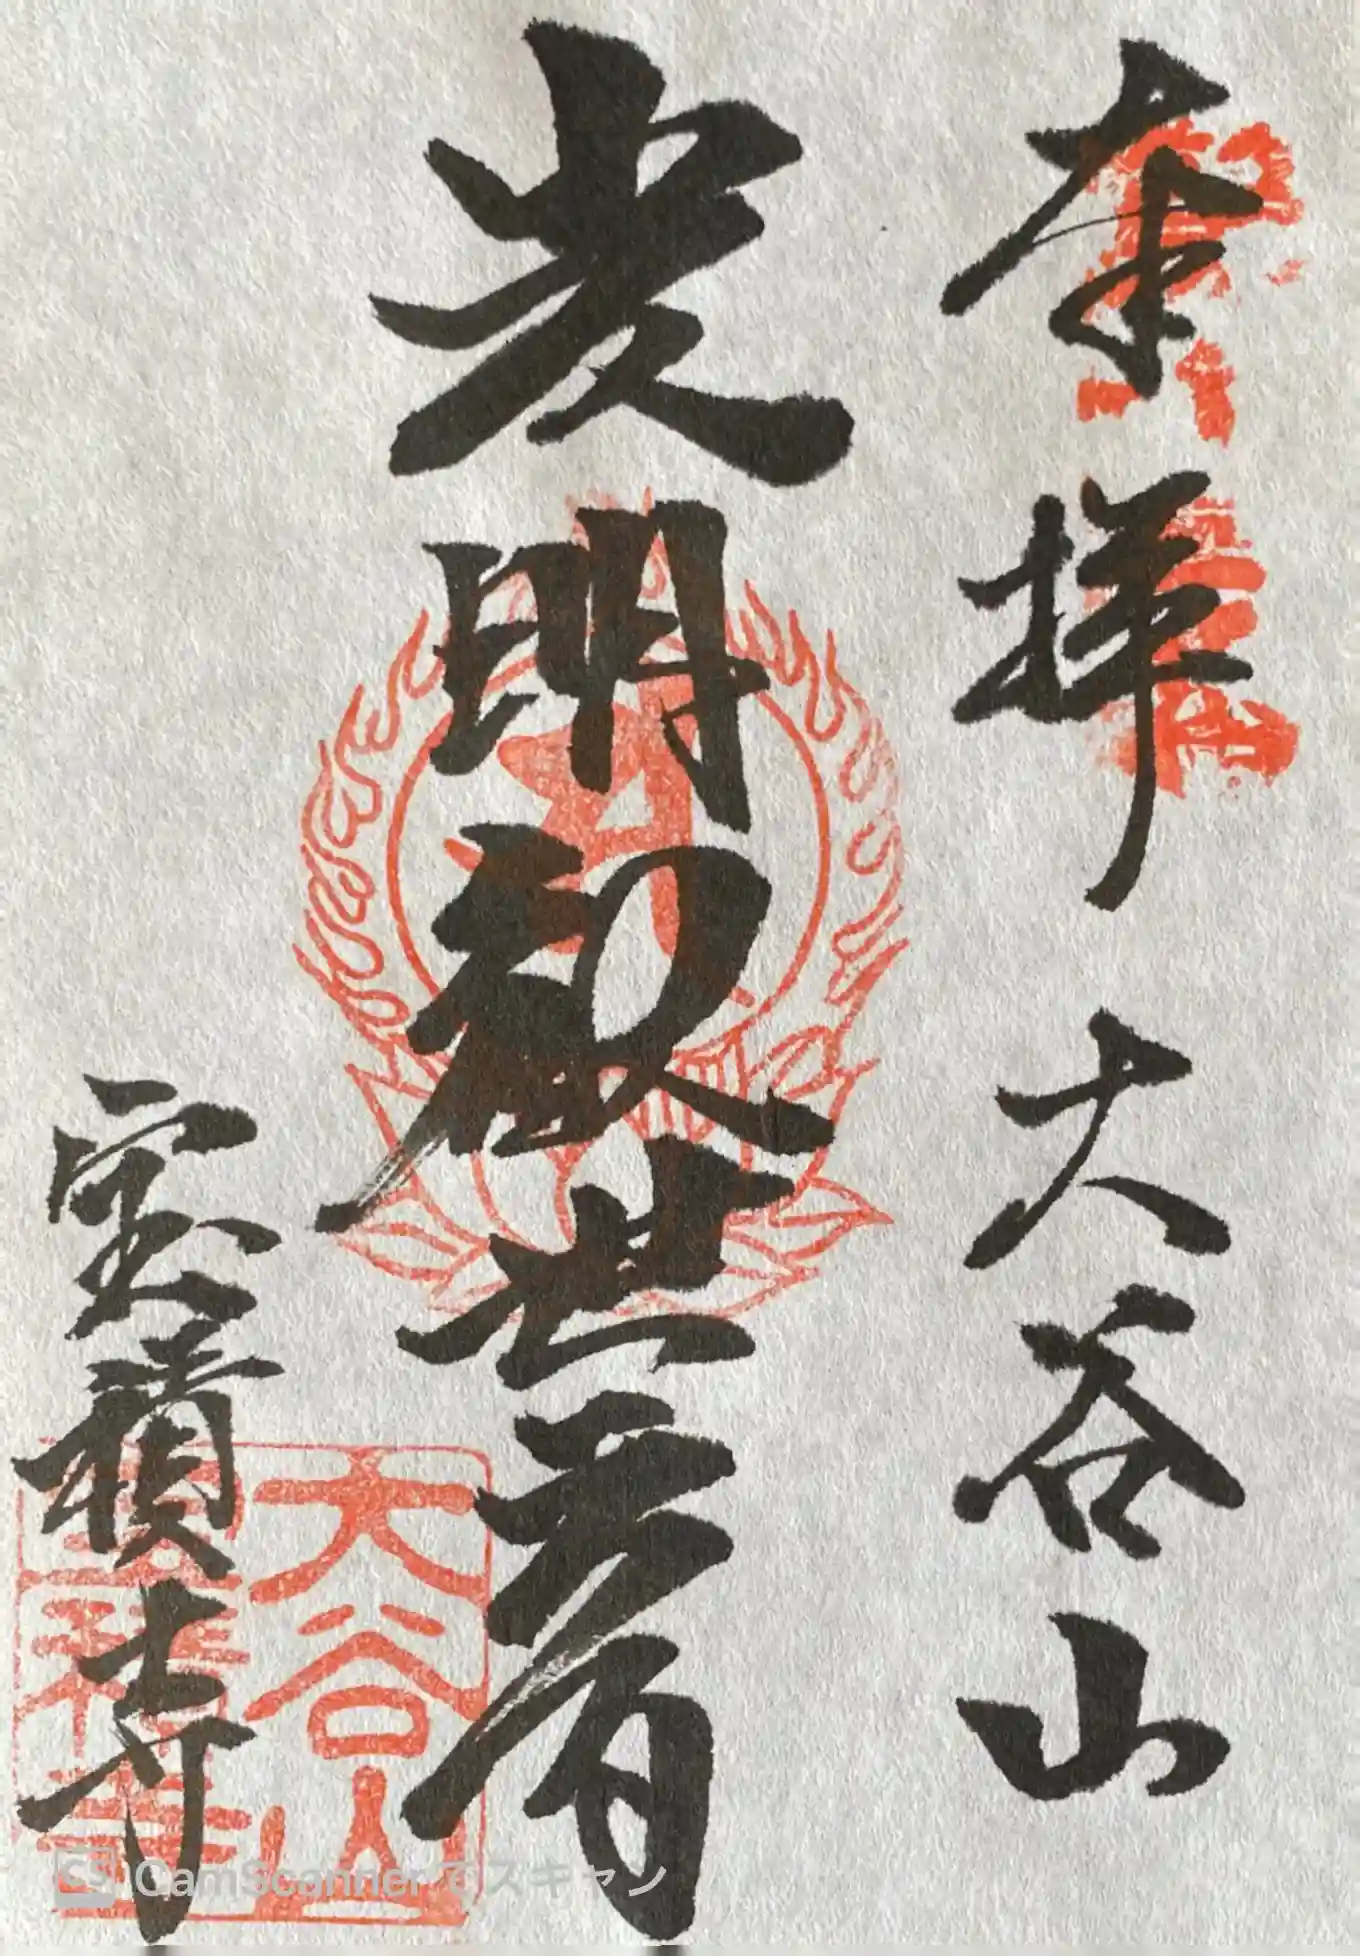 奉拝 大谷山
光明観世音
宝積寺
大谷山
宝積寺
CS CamScannerでスキャン